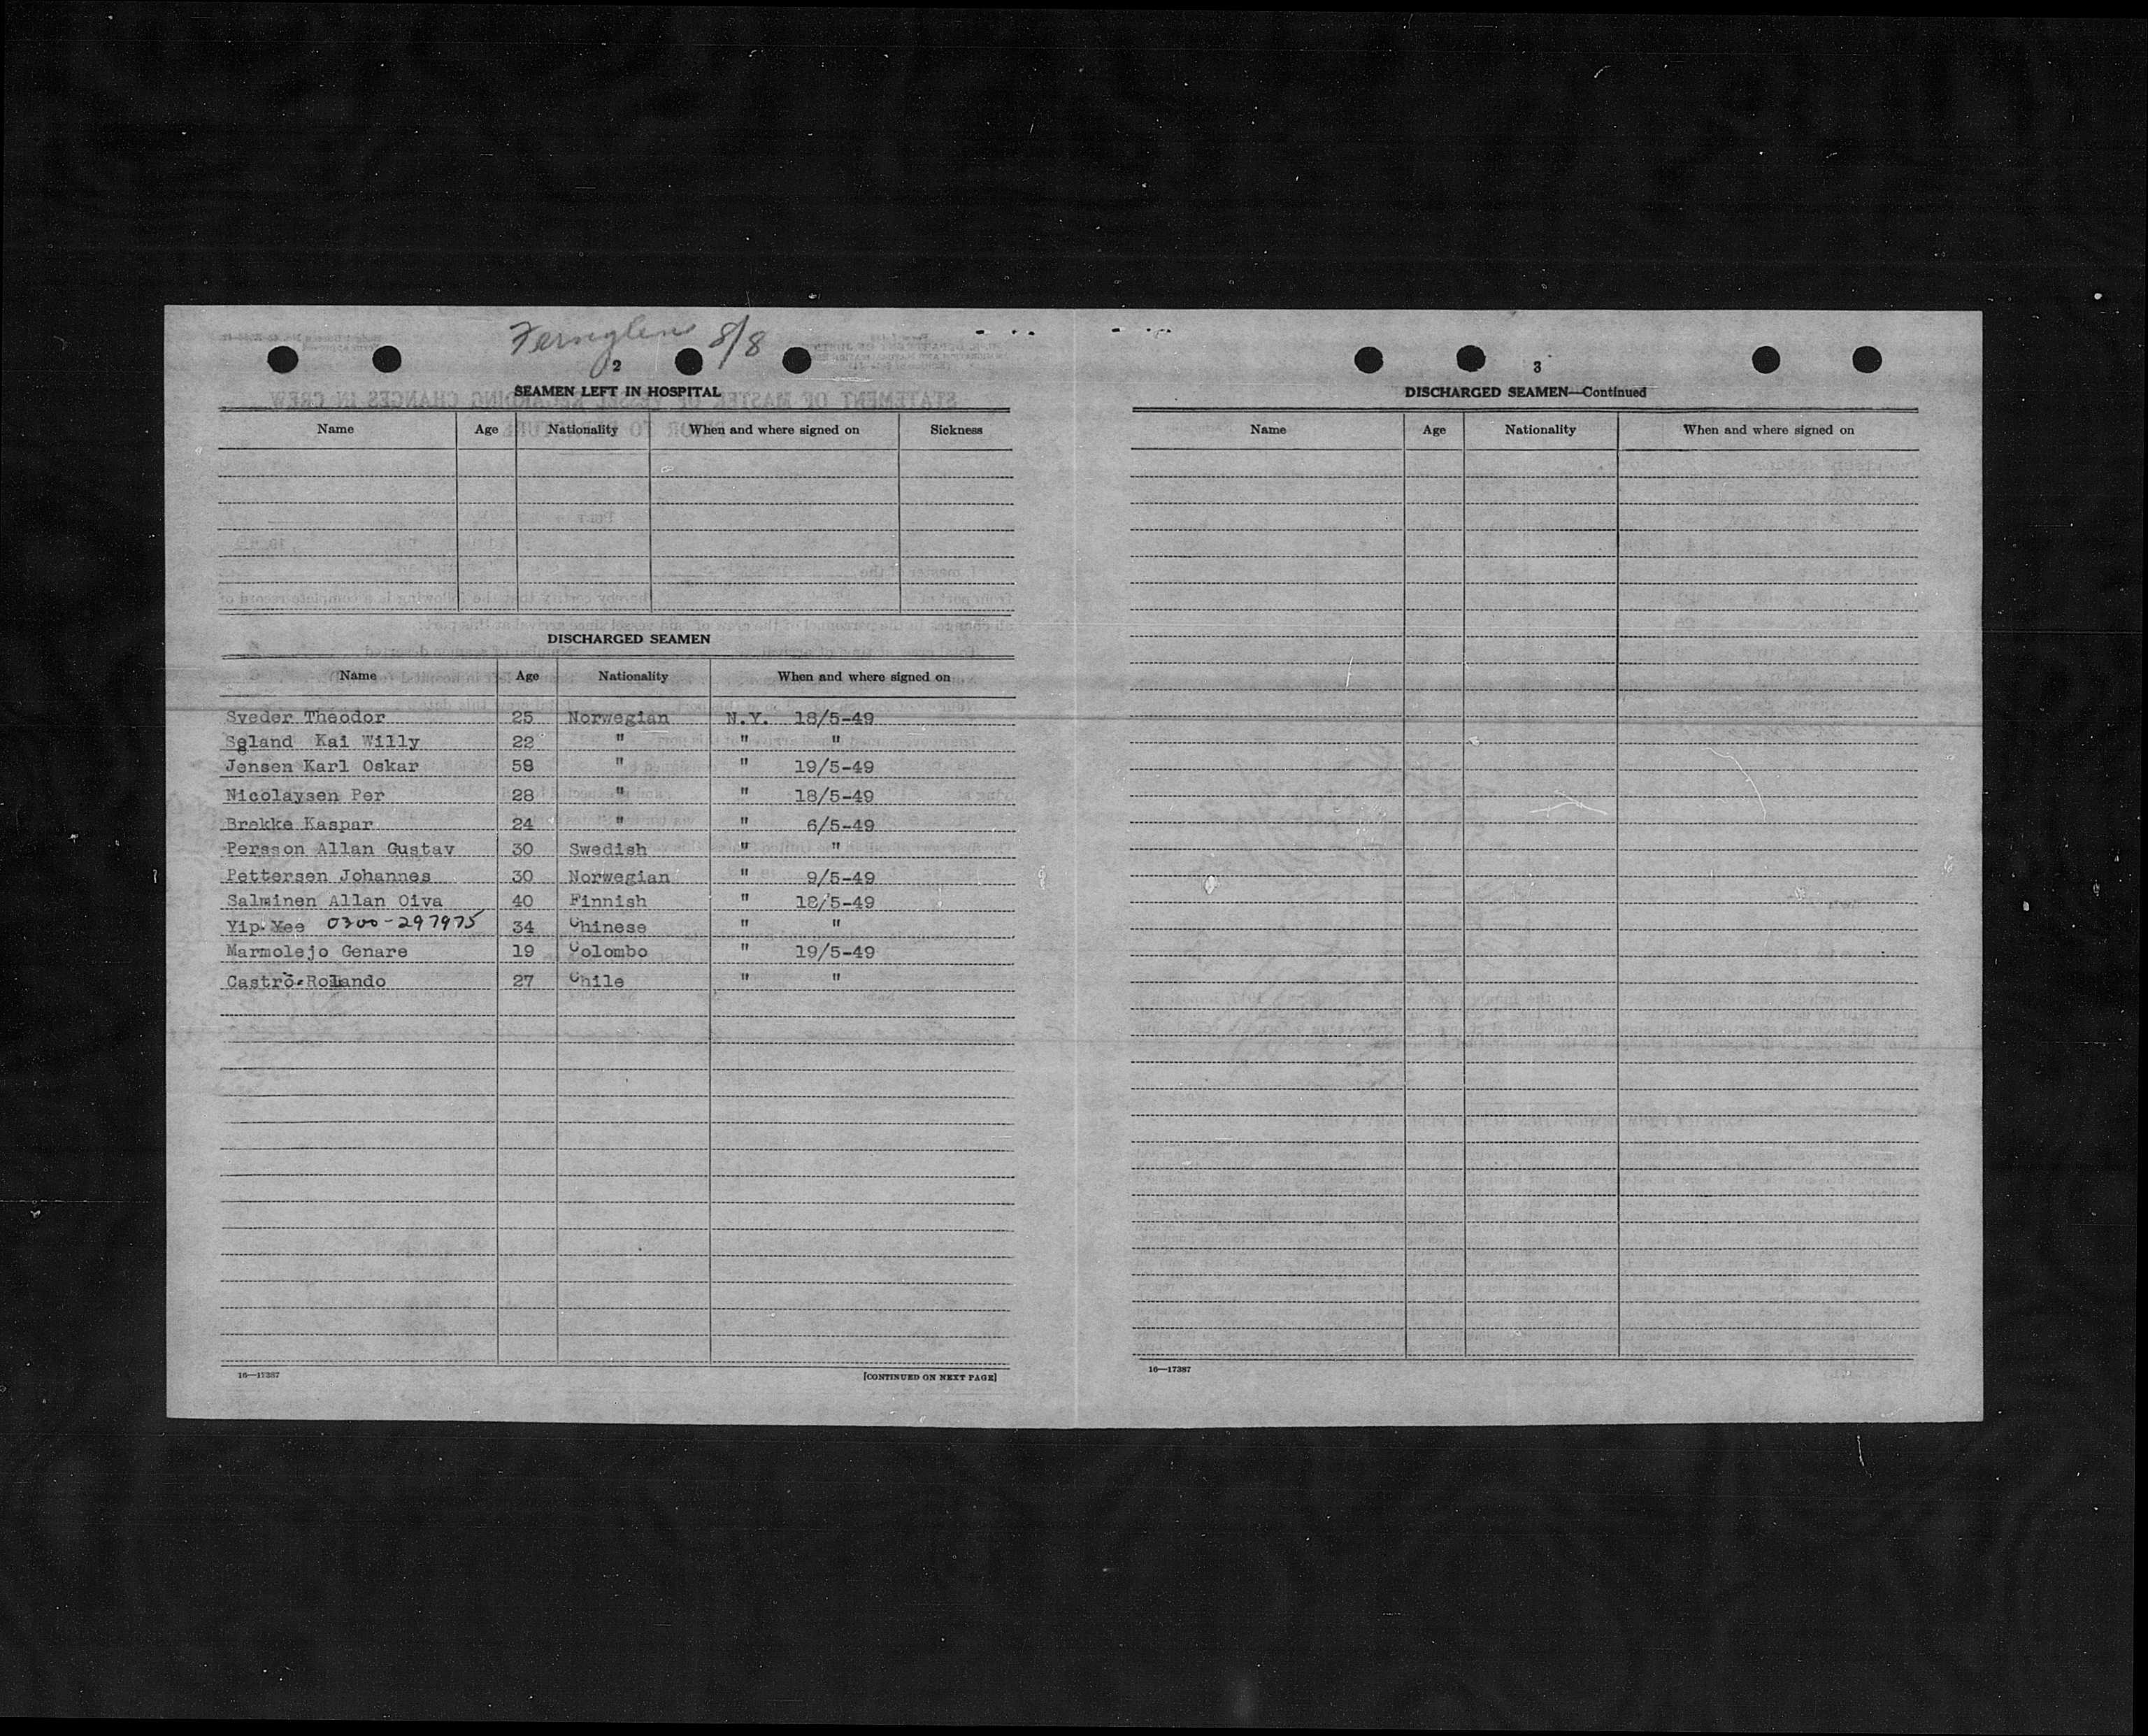 Fernglen 8/8
2
SEAMEN LEFT IN HOSPITAL
Name Age Nationality When and where signed on Sickness
DISCHARGED SEAMEN
Name Age Nationality When and where signed on
Sveder Theodor 25 Norwegian N.Y. 18/5-49
Søland Kai Willy 22 " " "
Jensen Karl Oskar 58 " " 19/5-49
Nicolaysen Per 28 " " 18/5-49
Brekke Kaspar 24 " " 6/5-49
Persson Allan Gustav 30 Swedish " "
Pettersen Johannes 30 Norwegian " 9/5-49
Salminen Allan Oiva 40 Finnish " 18/5-49
Yip Yee 0300-297975 34 Chinese " "
Marmolejo Genare 19 Colombo " 19/5-49
Castro Rolando 27 Chile " "
16—17387 [CONTINUED ON NEXT PAGE]
3
DISCHARGED SEAMEN—Continued
Name Age Nationality When and where signed on
16—17387